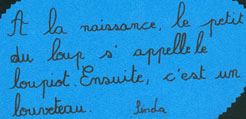 A la naissance, le petit
du loup s'appelle le
loupiot. Ensuite, c'est un
louveteau. Linda